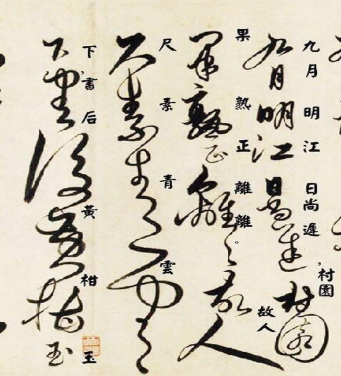 九月明江日尚遲村園
九月明江日尚遲村園
果熟正離離故人
果熟正離離故人
尺素青雲
尺素青雲
下書后黃柑玉
下書後黃柑玉